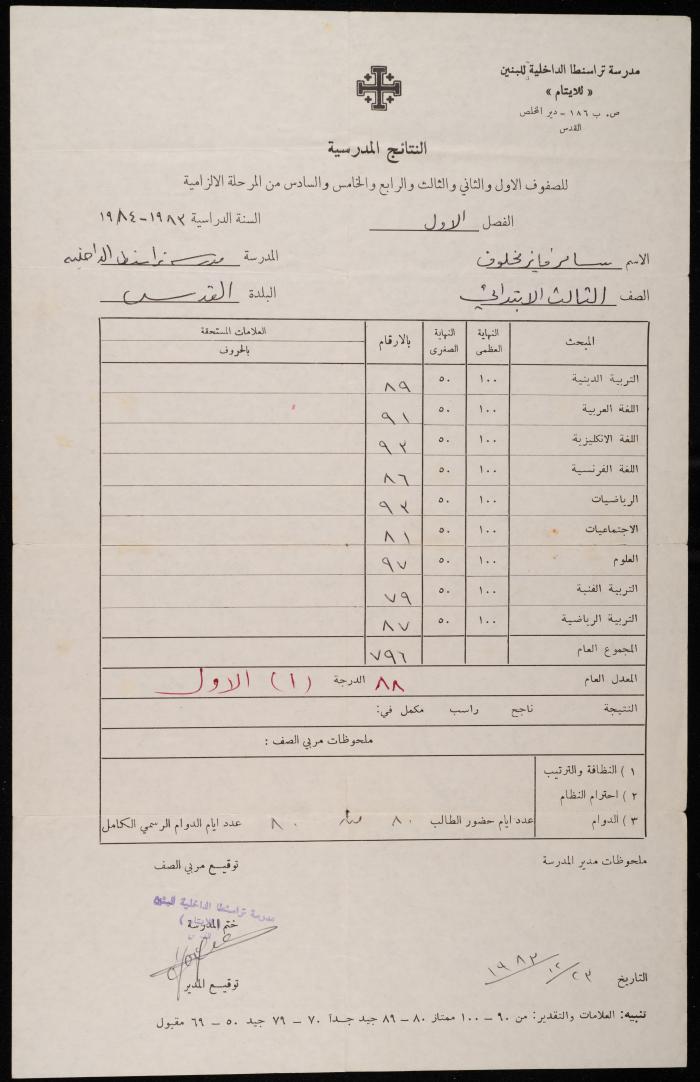 مدرسة تراسنطا الداخلية للبنين
« للايتام »
ص. ب ١٨٦ - دير المخلص
القدس
النتائج المدرسية
للصفوف الاول والثاني والثالث والرابع والخامس والسادس من المرحلة الالزامية
الفصل الاول السنة الدراسية ١٩٨٣-١٩٨٤
الاسم سامر فايز مخلوف المدرسة مدرسة تراسنطا الداخليه
الصف الثالث الابتدائي البلدة القدس
المبحث النهاية العظمى النهاية الصغرى بالارقام العلامات المستحقة بالحروف
التربية الدينية ١٠٠ ٥٠ ٨٩
اللغة العربية ١٠٠ ٥٠ ٩١
اللغة الانكليزية ١٠٠ ٥٠ ٩٣
اللغة الفرنسية ١٠٠ ٥٠ ٨٦
الرياضيات ١٠٠ ٥٠ ٩٣
الاجتماعيات ١٠٠ ٥٠ ٨١
العلوم ١٠٠ ٥٠ ٩٧
التربية الفنية ١٠٠ ٥٠ ٧٩
التربية الرياضية ١٠٠ ٥٠ ٨٧
المجموع العام ٧٩٦
المعدل العام ٨٨ الدرجة (١) الاول
النتيجة ناجح راسب مكمل في:
ملحوظات مربي الصف :
١ ) النظافة والترتيب
٢ ) احترام النظام
٣ ) الدوام عدد ايام حضور الطالب ٨٠ من ٨٠ عدد ايام الدوام الرسمي الكامل
ملحوظات مدير المدرسة توقيع مربي الصف
مدرسة تراسنطا الداخلية للبنين
( للايتام )
ختم المدرسة
القدس
التاريخ ٢٣/١٢/١٩٨٣ توقيع المدير
تنبيه: العلامات والتقدير: من ٩٠ - ١٠٠ ممتاز ٨٠ - ٨٩ جيد جداً ٧٠ - ٧٩ جيد ٥٠ - ٦٩ مقبول